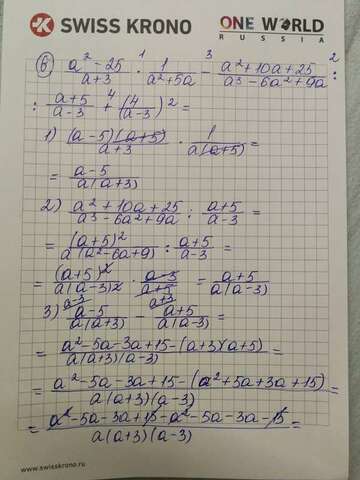 SWISS KRONO ONE WORLD
RUSSIA
в) (a² - 25)/(a+3) · 1/(a²+5a) - (a²+10a+25)/(a³-6a²+9a) :
1 3 2
: (a+5)/(a-3) + (4/(a-3))² =
4
1) ((a-5)(a+5))/(a+3) · 1/(a(a+5)) =
= (a-5)/(a(a+3))
2) (a²+10a+25)/(a³-6a²+9a) : (a+5)/(a-3) =
= (a+5)²/(a(a²-6a+9)) : (a+5)/(a-3) =
= (a+5)²/(a(a-3)²) · (a-3)/(a+5) = (a+5)/(a(a-3))
a-3 a+3
3) (a-5)/(a(a+3)) - (a+5)/(a(a-3)) =
= (a²-5a-3a+15-(a+3)(a+5))/(a(a+3)(a-3)) =
= (a²-5a-3a+15-(a²+5a+3a+15))/(a(a+3)(a-3)) =
= (a²-5a-3a+15-a²-5a-3a-15)/(a(a+3)(a-3)) =
www.swisskrono.ru